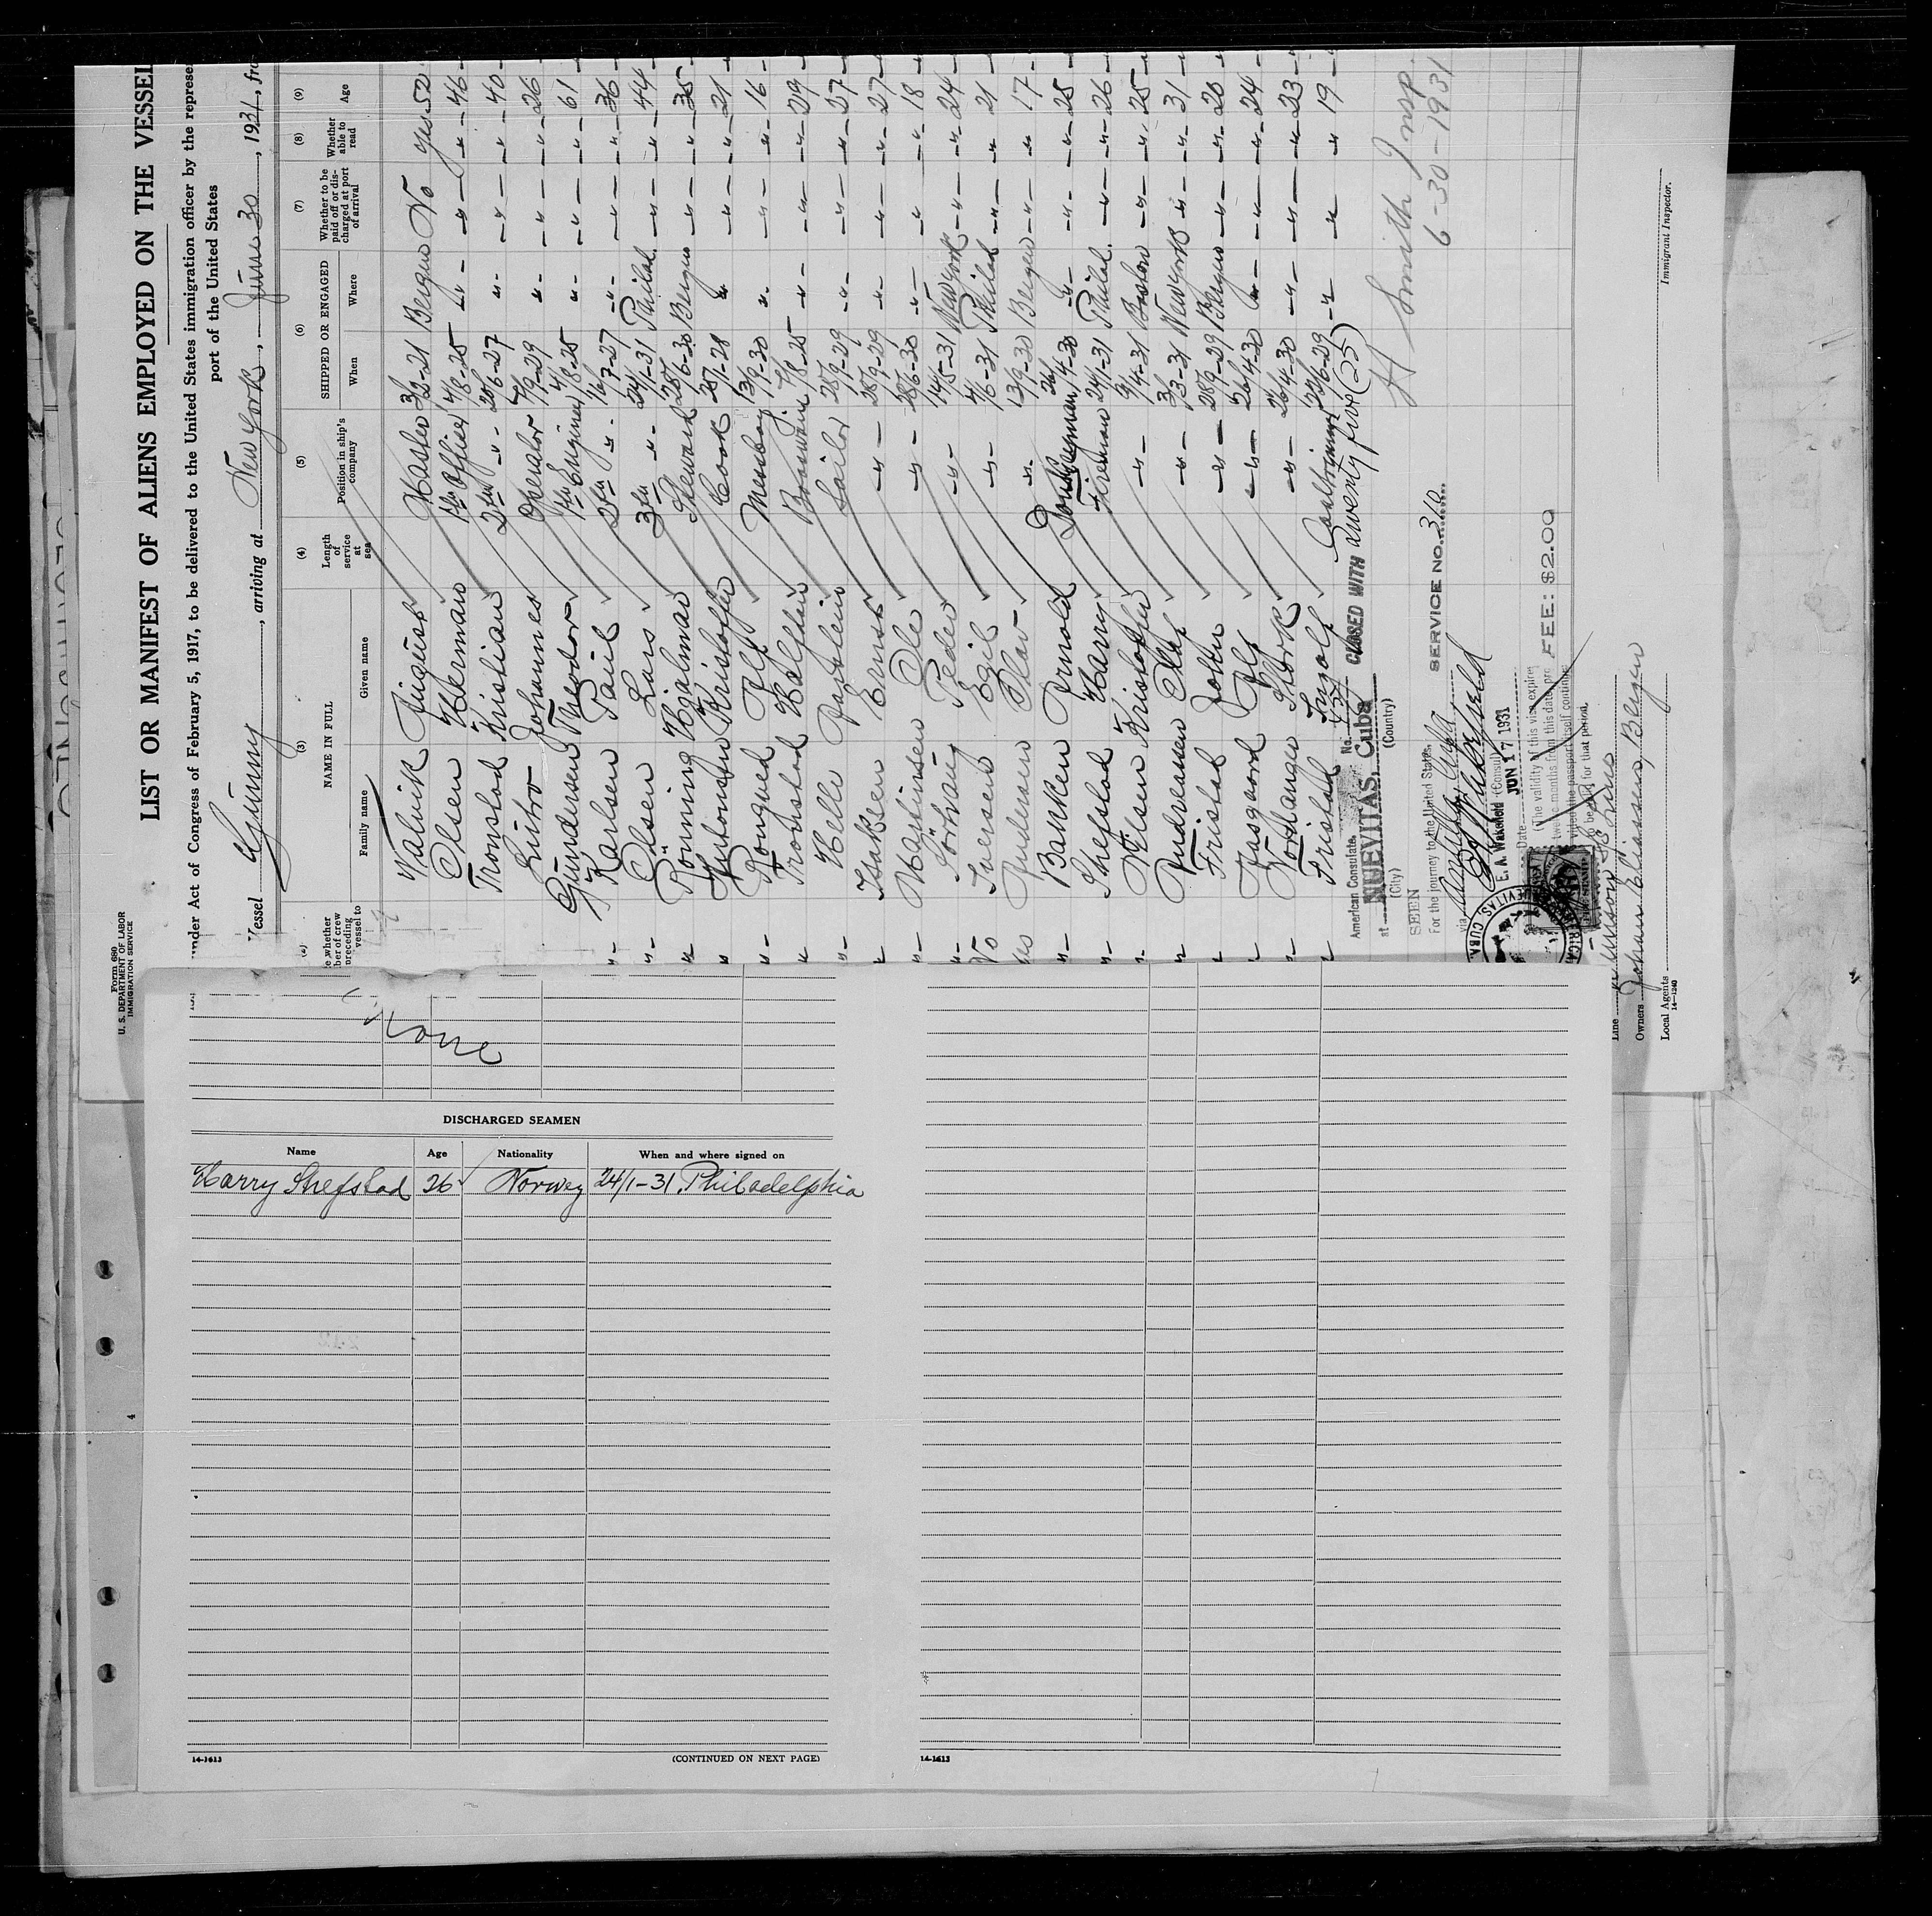 Form 680
U. S. DEPARTMENT OF LABOR
IMMIGRATION SERVICE
LIST OR MANIFEST OF ALIENS EMPLOYED ON THE VESSEL
under Act of Congress of February 5, 1917, to be delivered to the United States immigration officer by the represe
port of the United States
Vessel Gunny, arriving at New York, June 30, 1931, fro
(3) (4) (5) (6) (7) (8) (9)
NAME IN FULL Length of service at sea Position in ship's company SHIPPED OR ENGAGED Whether to be paid off or discharged at port of arrival Whether able to read Age
Family name Given name When Where
Valvik August Master 3/12-21 Bergen No Yes 52
Olsen Herman 1st Officer 4/8-25 " " " 46
Tronstad Kristian 2nd " 20/6-27 " " " 40
Lutro Johannes Operator 7/9-29 " " " 26
Gundersen Theodor 1st Engineer 4/8-25 " " " 61
" Karlsen Paul 2nd " 16/7-27 " " " 36
" Olsen Lars 3rd " 24/1-31 Philad. " " 44
" Rönning Hjalmar Steward 28/6-30 Bergen " " 35
" Antonsen Kristoffer Cook 25/1-28 " " " 21
" Rongved Alf Messboy 13/9-30 " " " 16
" Tronstad Halfdan Boatswain 7/8-25 " " " 29
" Helle Sailor 28/9-29 " " " 27
" Isaksen Ernst " 28/9-29 " " " 27
" Martinsen Ole " 28/6-30 " " " 18
" Sörhaug Peder " 14/5-31 New York " " 24
No Iversen Egil " 4/6-31 Philad " " 21
Yes Andersen Olav " 13/9-30 Bergen " " 17
" Bakken Arnold Donkeyman 26/4-30 " " " 25
" Shefstad Harry Fireman 24/1-31 Philad. " " 26
" Nilsen Kristoffer " 9/4-31 Boston " " 25
" Andreassen Olaf " 3/3-31 New York " " 31
" Fristad John " 28/9-29 Bergen " " 20
" Fasgaard Alf " 26/4-30 " " " 24
" Nordanger Sverk " 26/4-30 " " " 23
" Fristad Ingolf Coaltrimmer 23/6-29 " " " 19
American Consulate No. 437 CLOSED WITH twenty five (25)
at NUEVITAS, Cuba
(City) (Country)
SEEN
For the journey to the United States. SERVICE NO. 310
via
E. A. Wakefield (Consul)
Date JUN 17 1931
(The validity of this visa expires
twelve months from this date, pro FEE: $2.00
vided the passport itself continues
to be valid for that period.
NUEVITAS, CUBA.
H Smith Insp.
6-30-1931
Line
Owners Johan Eliassen, Bergen
Local Agents
14-1240
Immigrant Inspector.
None
DISCHARGED SEAMEN
Name Age Nationality When and where signed on
Harry Shefstad 26 Norway 24/1-31. Philadelphia
14-1613 (CONTINUED ON NEXT PAGE) 14-1613
4